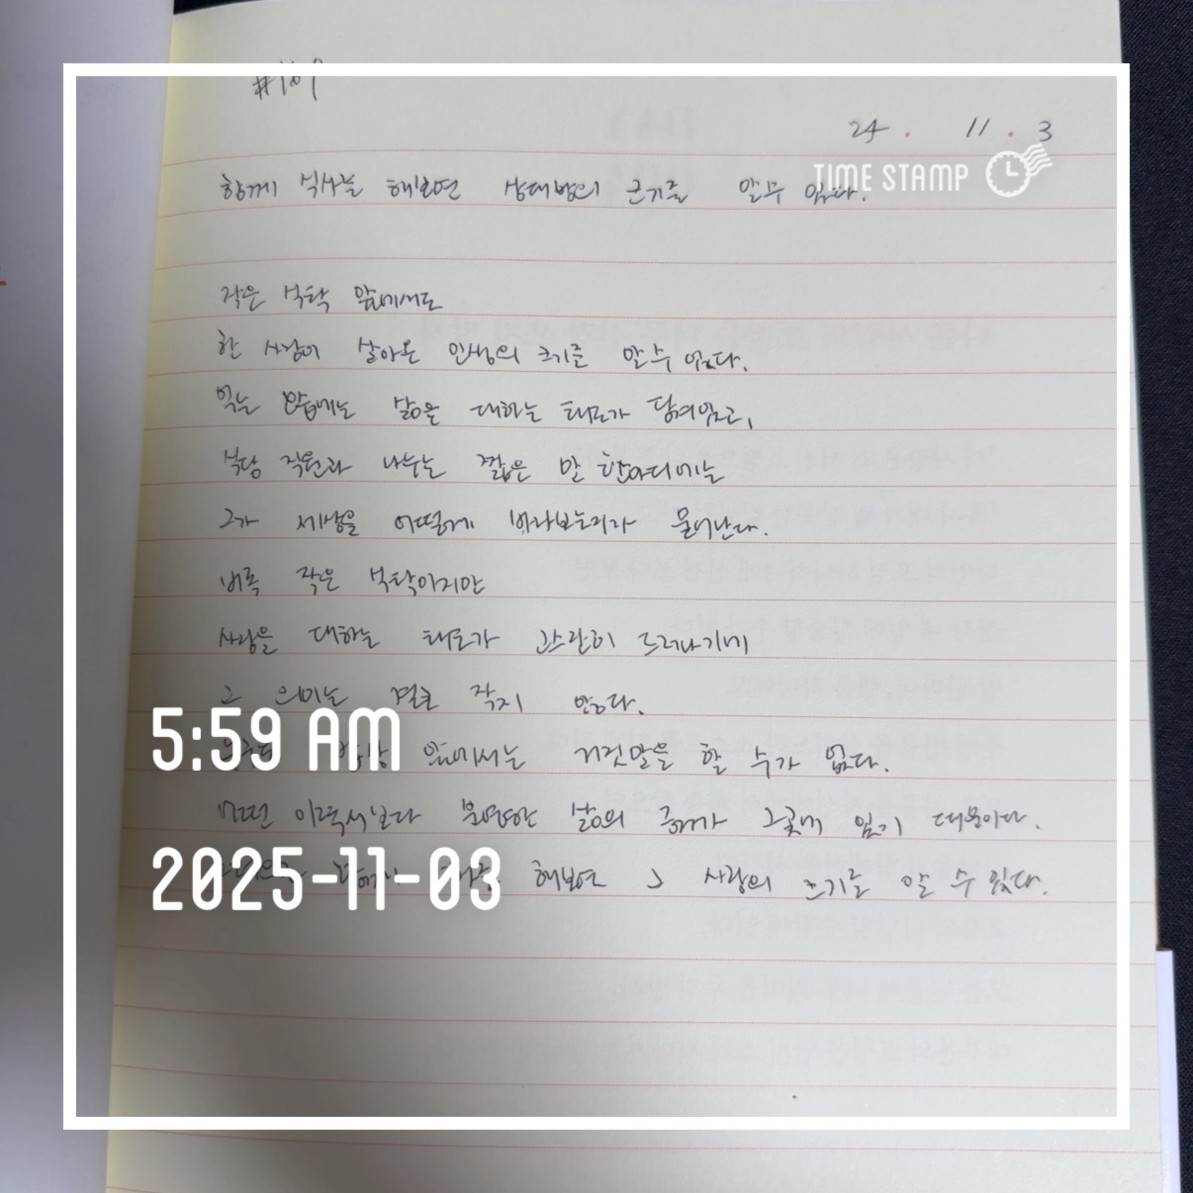 #109
24. 11. 3
TIME STAMP
함께 식사를 해보면 상대방의 크기를 알 수 있다.
작은 식탁 앞에서도
한 사람이 살아온 인생의 크기를 알 수 있다.
먹는 모습에는 삶을 대하는 태도가 담겨있고,
식당 직원과 나누는 짧은 말 한마디에는
그가 세상을 어떻게 바라보는지가 묻어난다.
비록 작은 식탁이지만
사람을 대하는 태도가 고스란히 드러나기에
그 의미는 결코 작지 않다.
5:59 AM
앞에서는 거짓말을 할 수가 없다.
어떤 이력서보다 분명한 삶의 증거가 그곳에 있기 때문이다.
2025-11-03
해보면 그 사람의 크기를 알 수 있다.